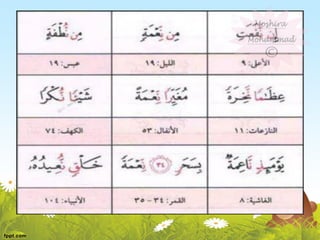 إِن نَّفَعَتِ مِن نِّعْمَةٍ مِن نُّطْفَةٍ
Moshira
Mohammad
©
الأعلى: ٩ الليل: ١٩ عبس: ١٩
عِظَـٰمًا نَّخِرَةً مُغَيِّرًا نِّعْمَةً شَيْـًٔا نُّكْرًا
النازعات: ١١ الأنفال: ٥٣ الكهف: ٧٤
يَوْمَئِذٍ نَّاعِمَةٌ بِسَحَرٍ ﴿٣٤﴾ نِّعْمَةً خَلْقٍ نُّعِيدُهُۥ
الغاشية: ٨ القمر: ٣٤ – ٣٥ الأنبياء: ١٠٤
fppt.com